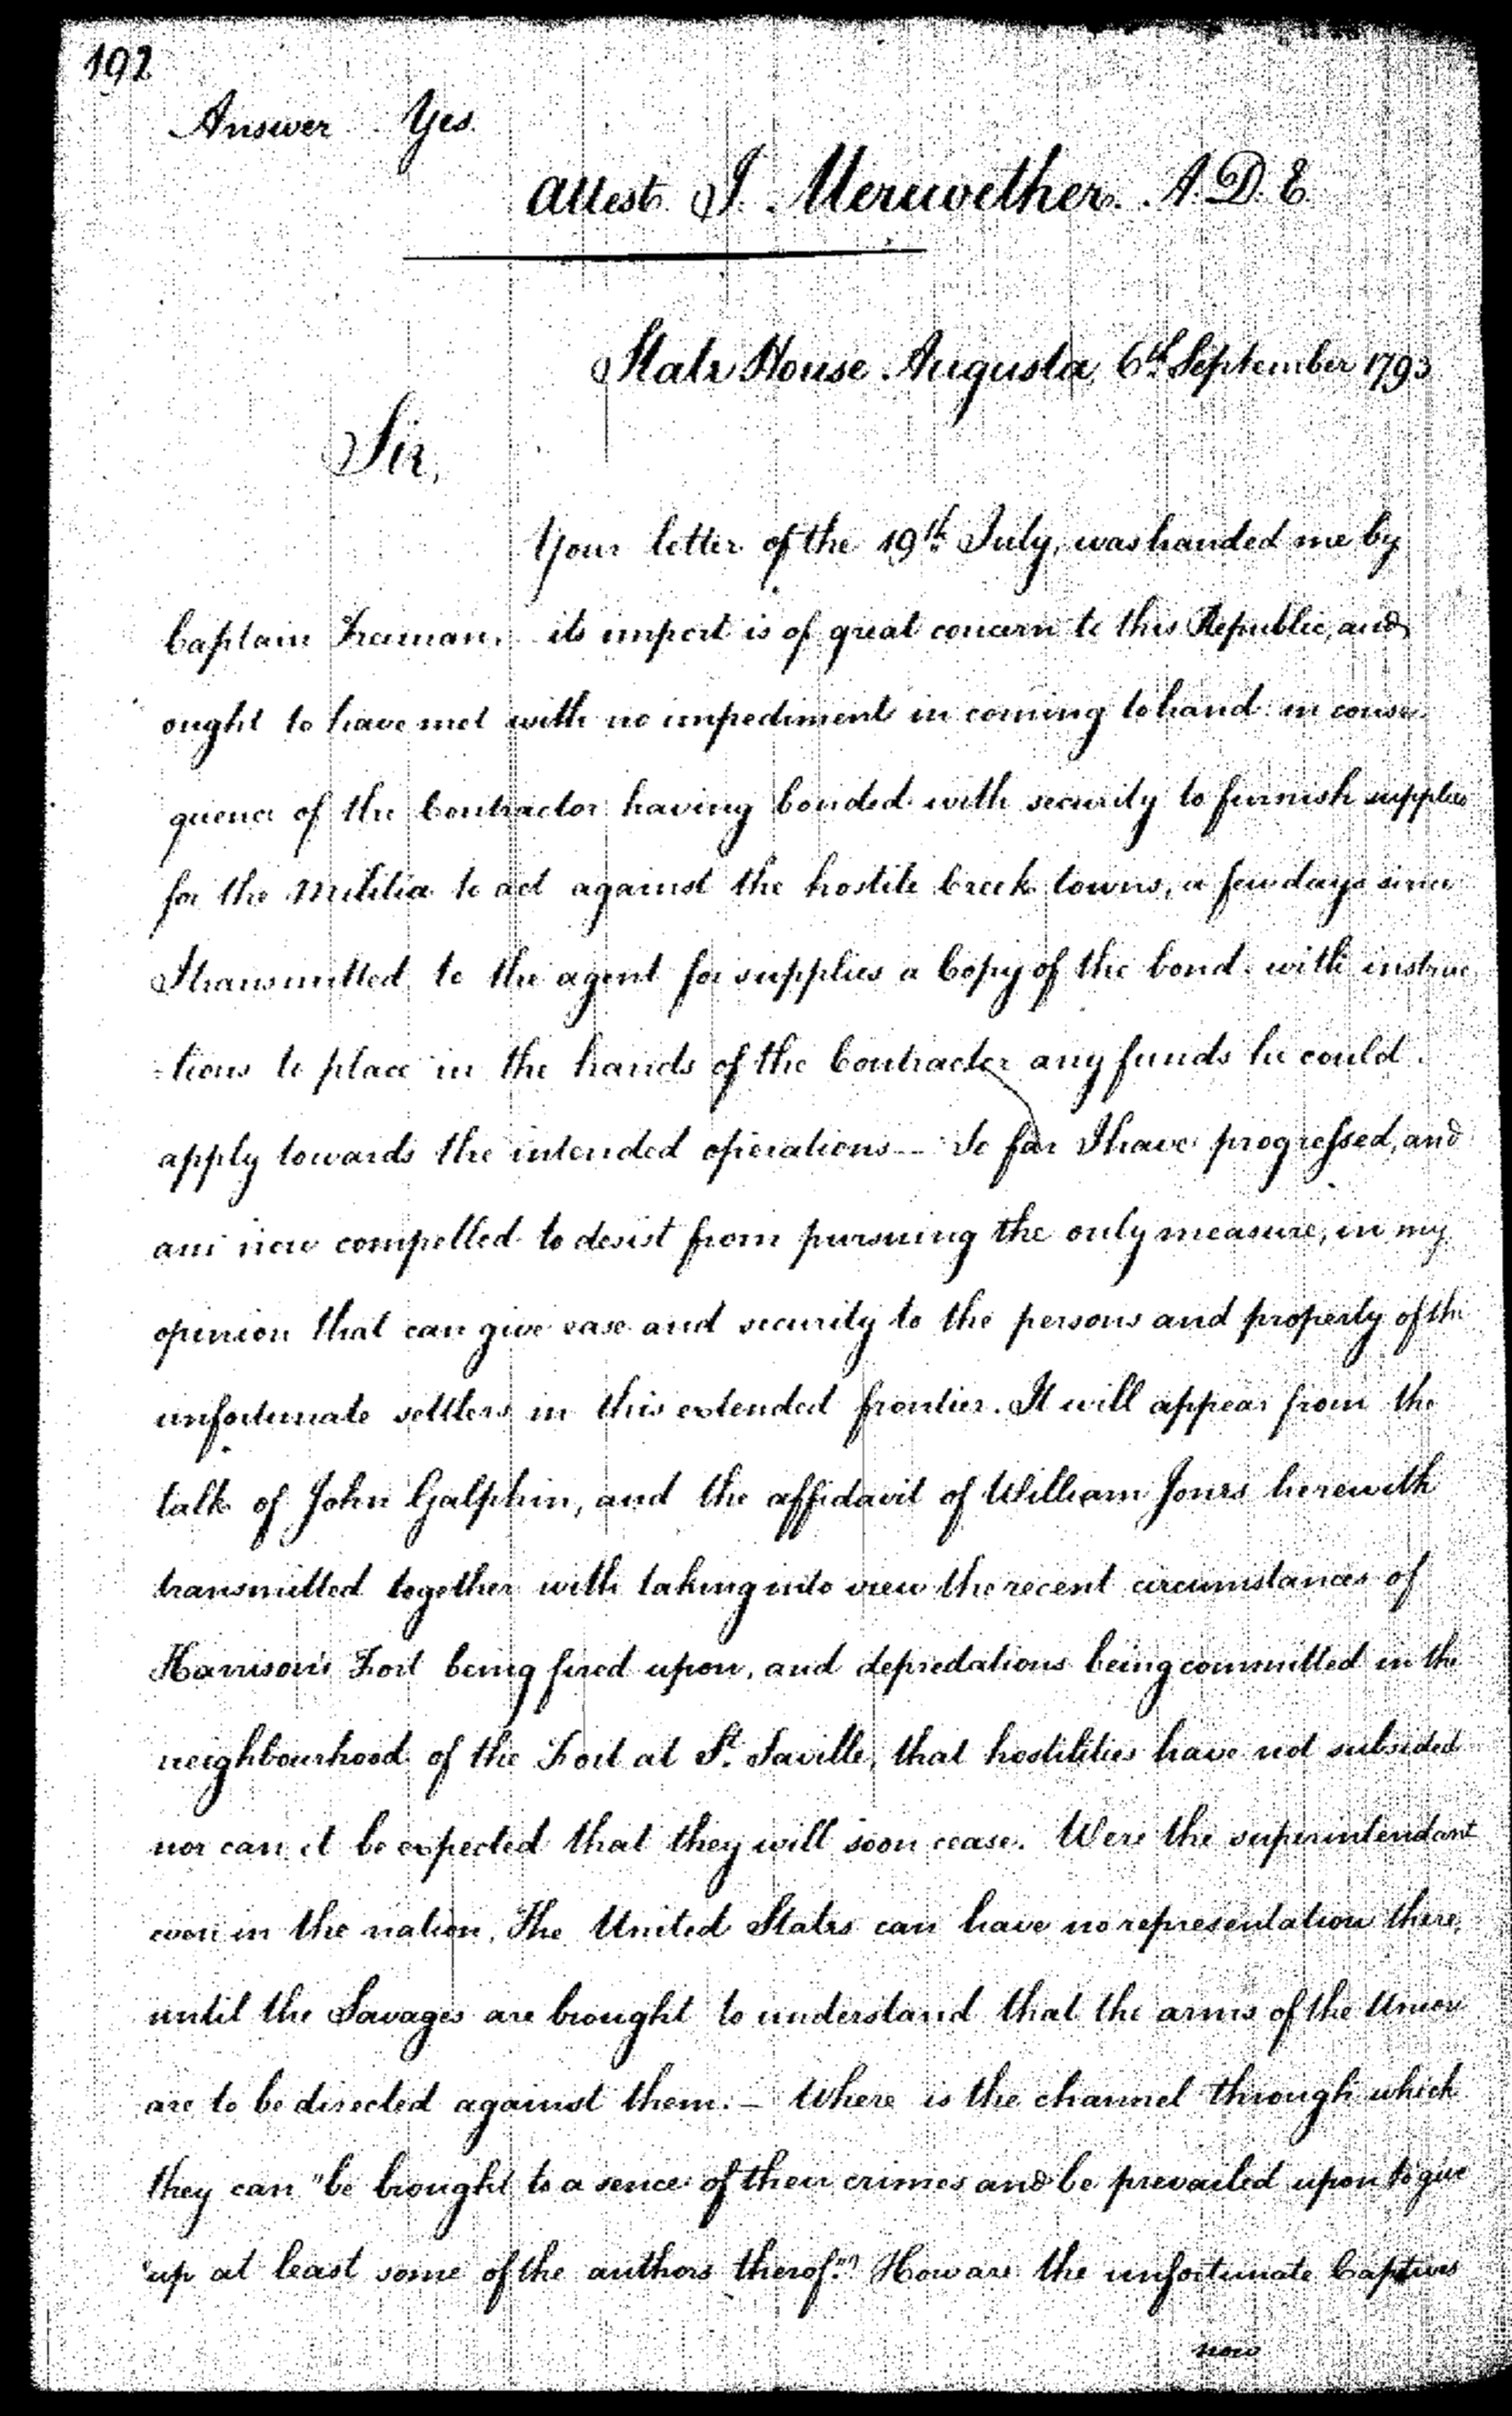 192
Answer Yes.
Attest. J. Meriwether. A. D. E.
State House Augusta, 6th September 1793
Sir,
Your letter of the 19th July, was handed me by
Captain Freeman, its import is of great concern to this Republic, and
ought to have met with no impediment in coming to hand. in conse-
quence of the Contractor having bonded with security to furnish supplies
for the Militia to act against the hostile Creek towns, a few days since
I transmitted to the agent for supplies a Copy of the bond. with instruc
-tions to place in the hands of the Contractor any funds he could
apply towards the intended operations -- So far I have progressed, and
am now compelled to desist from pursuing the only measure, in my
opinion that can give ease and security to the persons and property of the
unfortunate settlers in this extended frontier. It will appear from the
talk of John Galphin, and the affidavit of William Jones herewith
transmitted together with taking into view the recent circumstances of
Harrison's Fort being fired upon, and depredations being committed in the
neighbourhood of the Fort at St. Saville, that hostilities have not subsided
nor can it be expected that they will soon cease. Were the superintendant
even in the nation, The United States can have no representation there,
until the Savages are brought to understand that the arms of the Union
are to be directed against them. — Where is the channel through which
they can "be brought to a sence of their crimes and be prevailed upon to give
"up at least some of the authors therof."? How are the unfortunate Captives
now